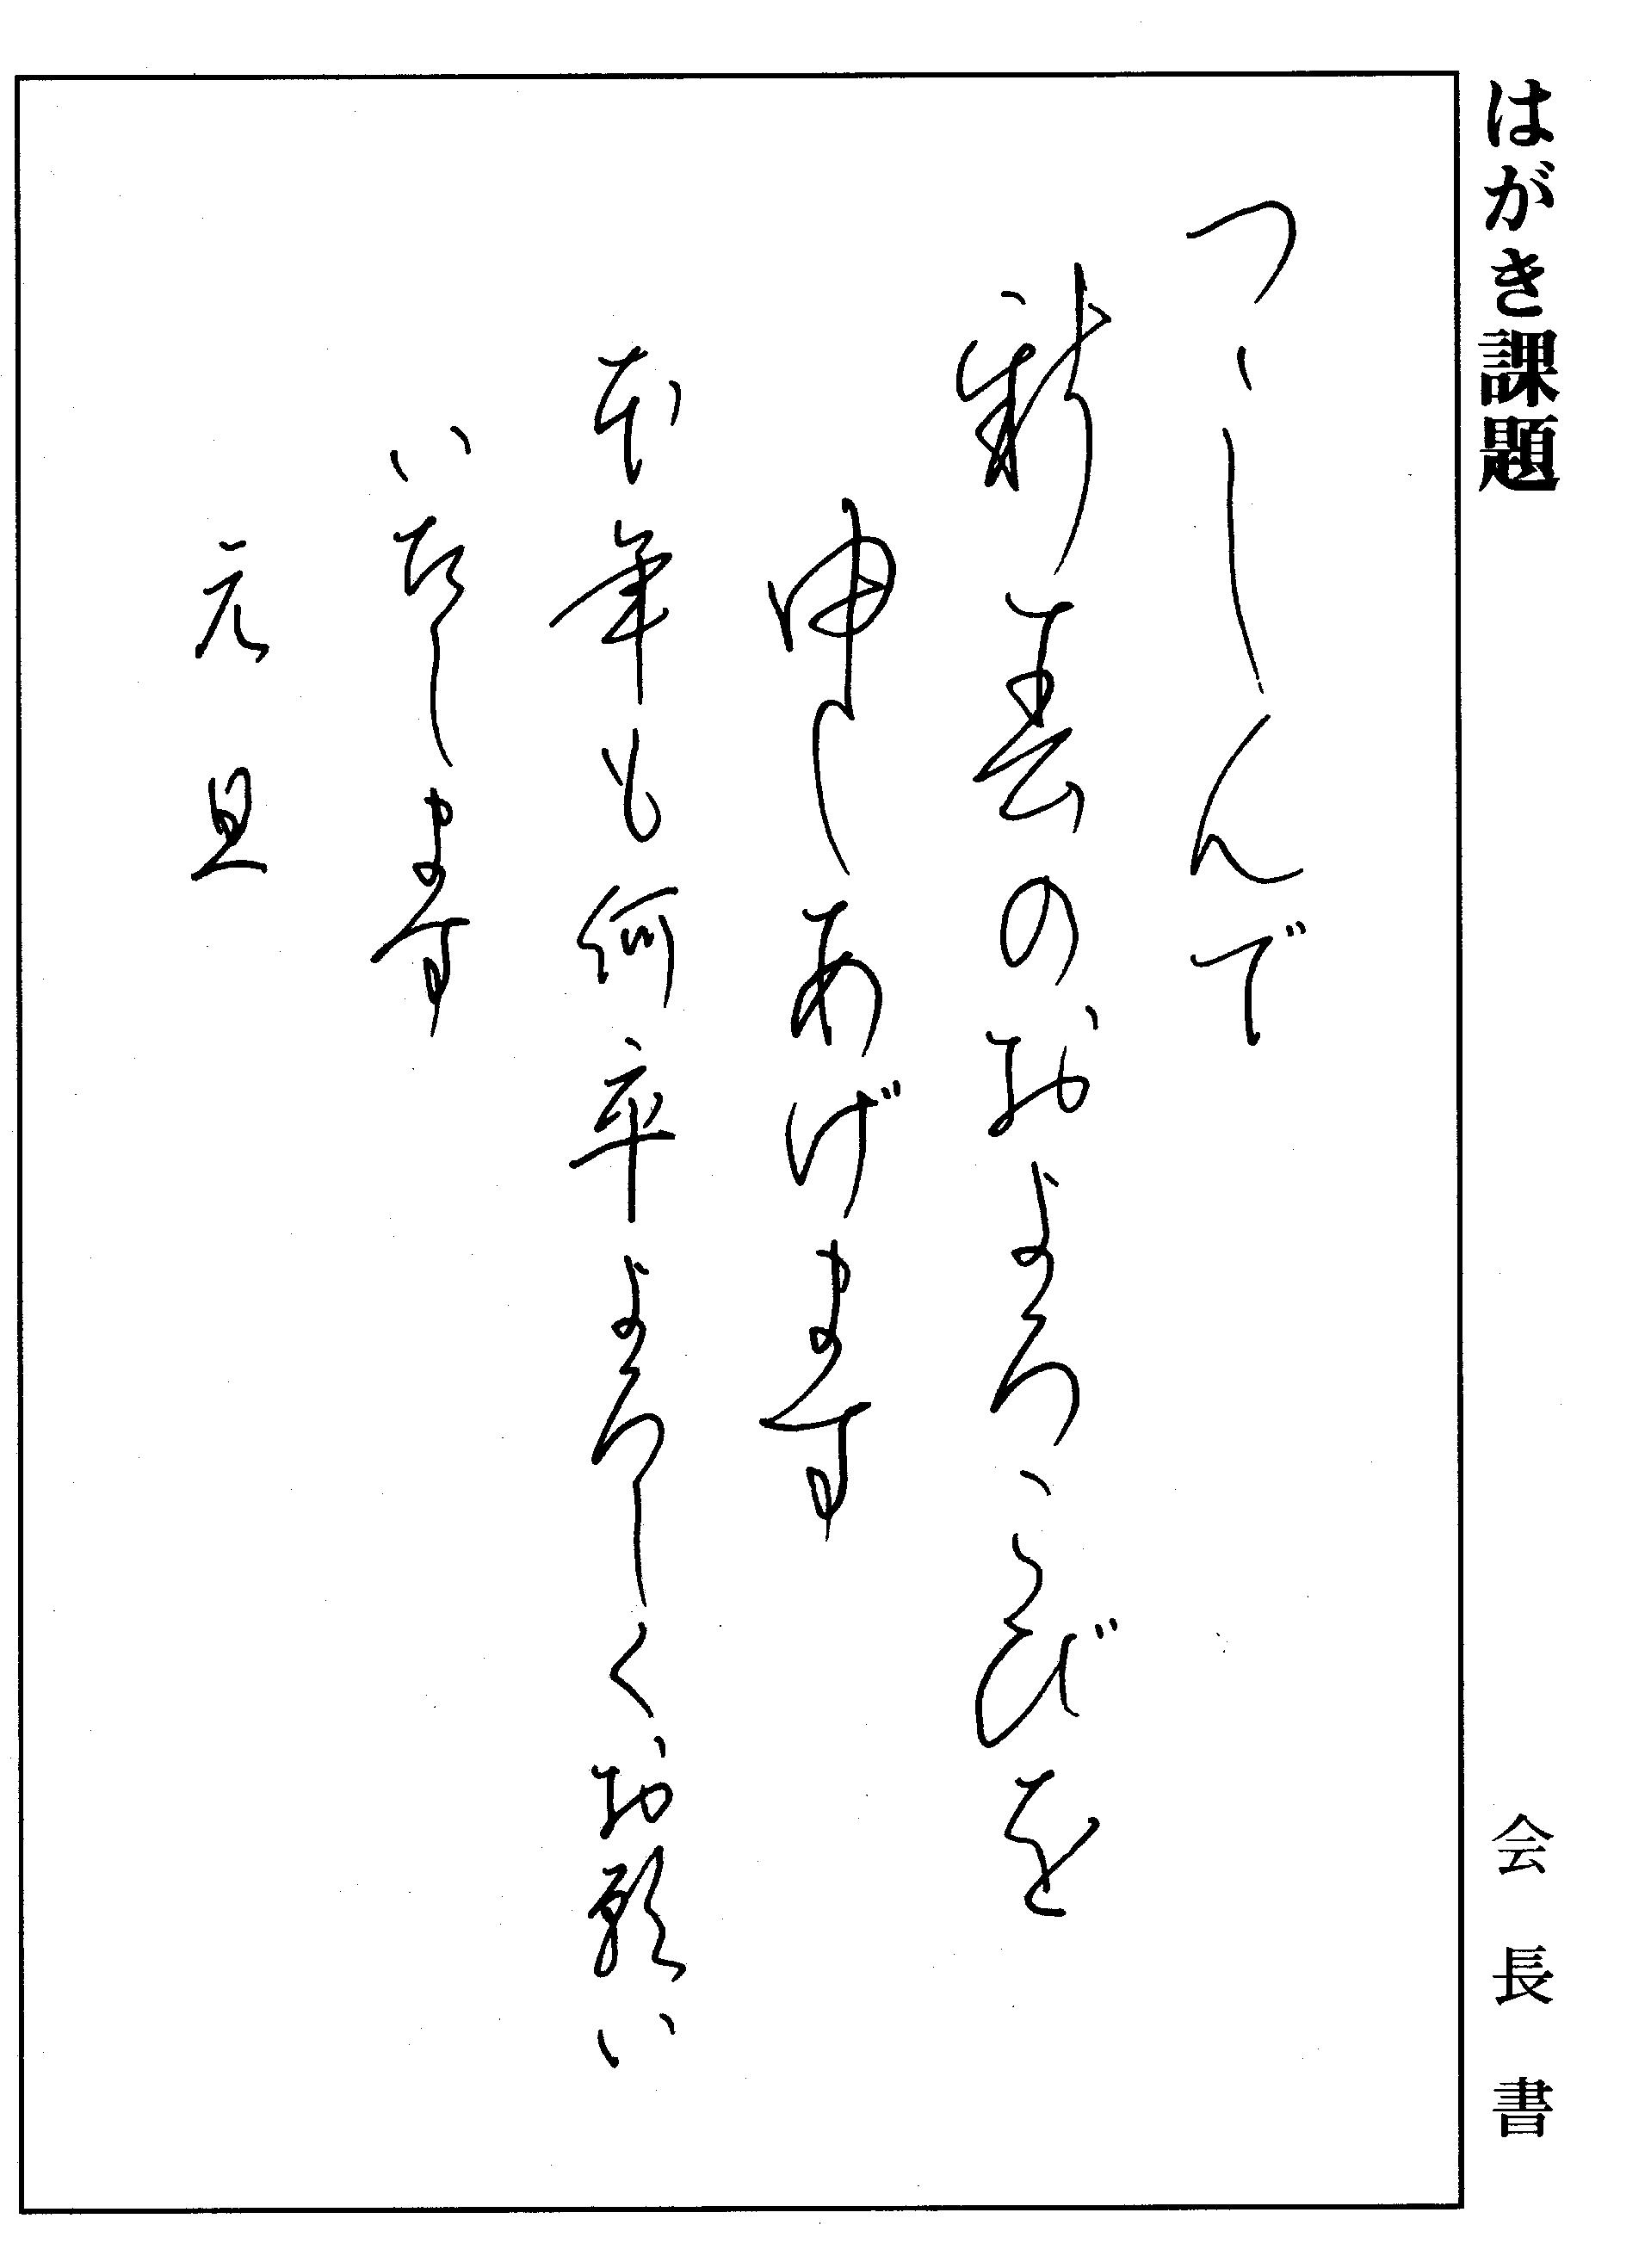 はがき課題
会長書
つゝしんで
新春のおよろこびを
申しあげます
本年も何卒よろしくお願い
いたします
元旦